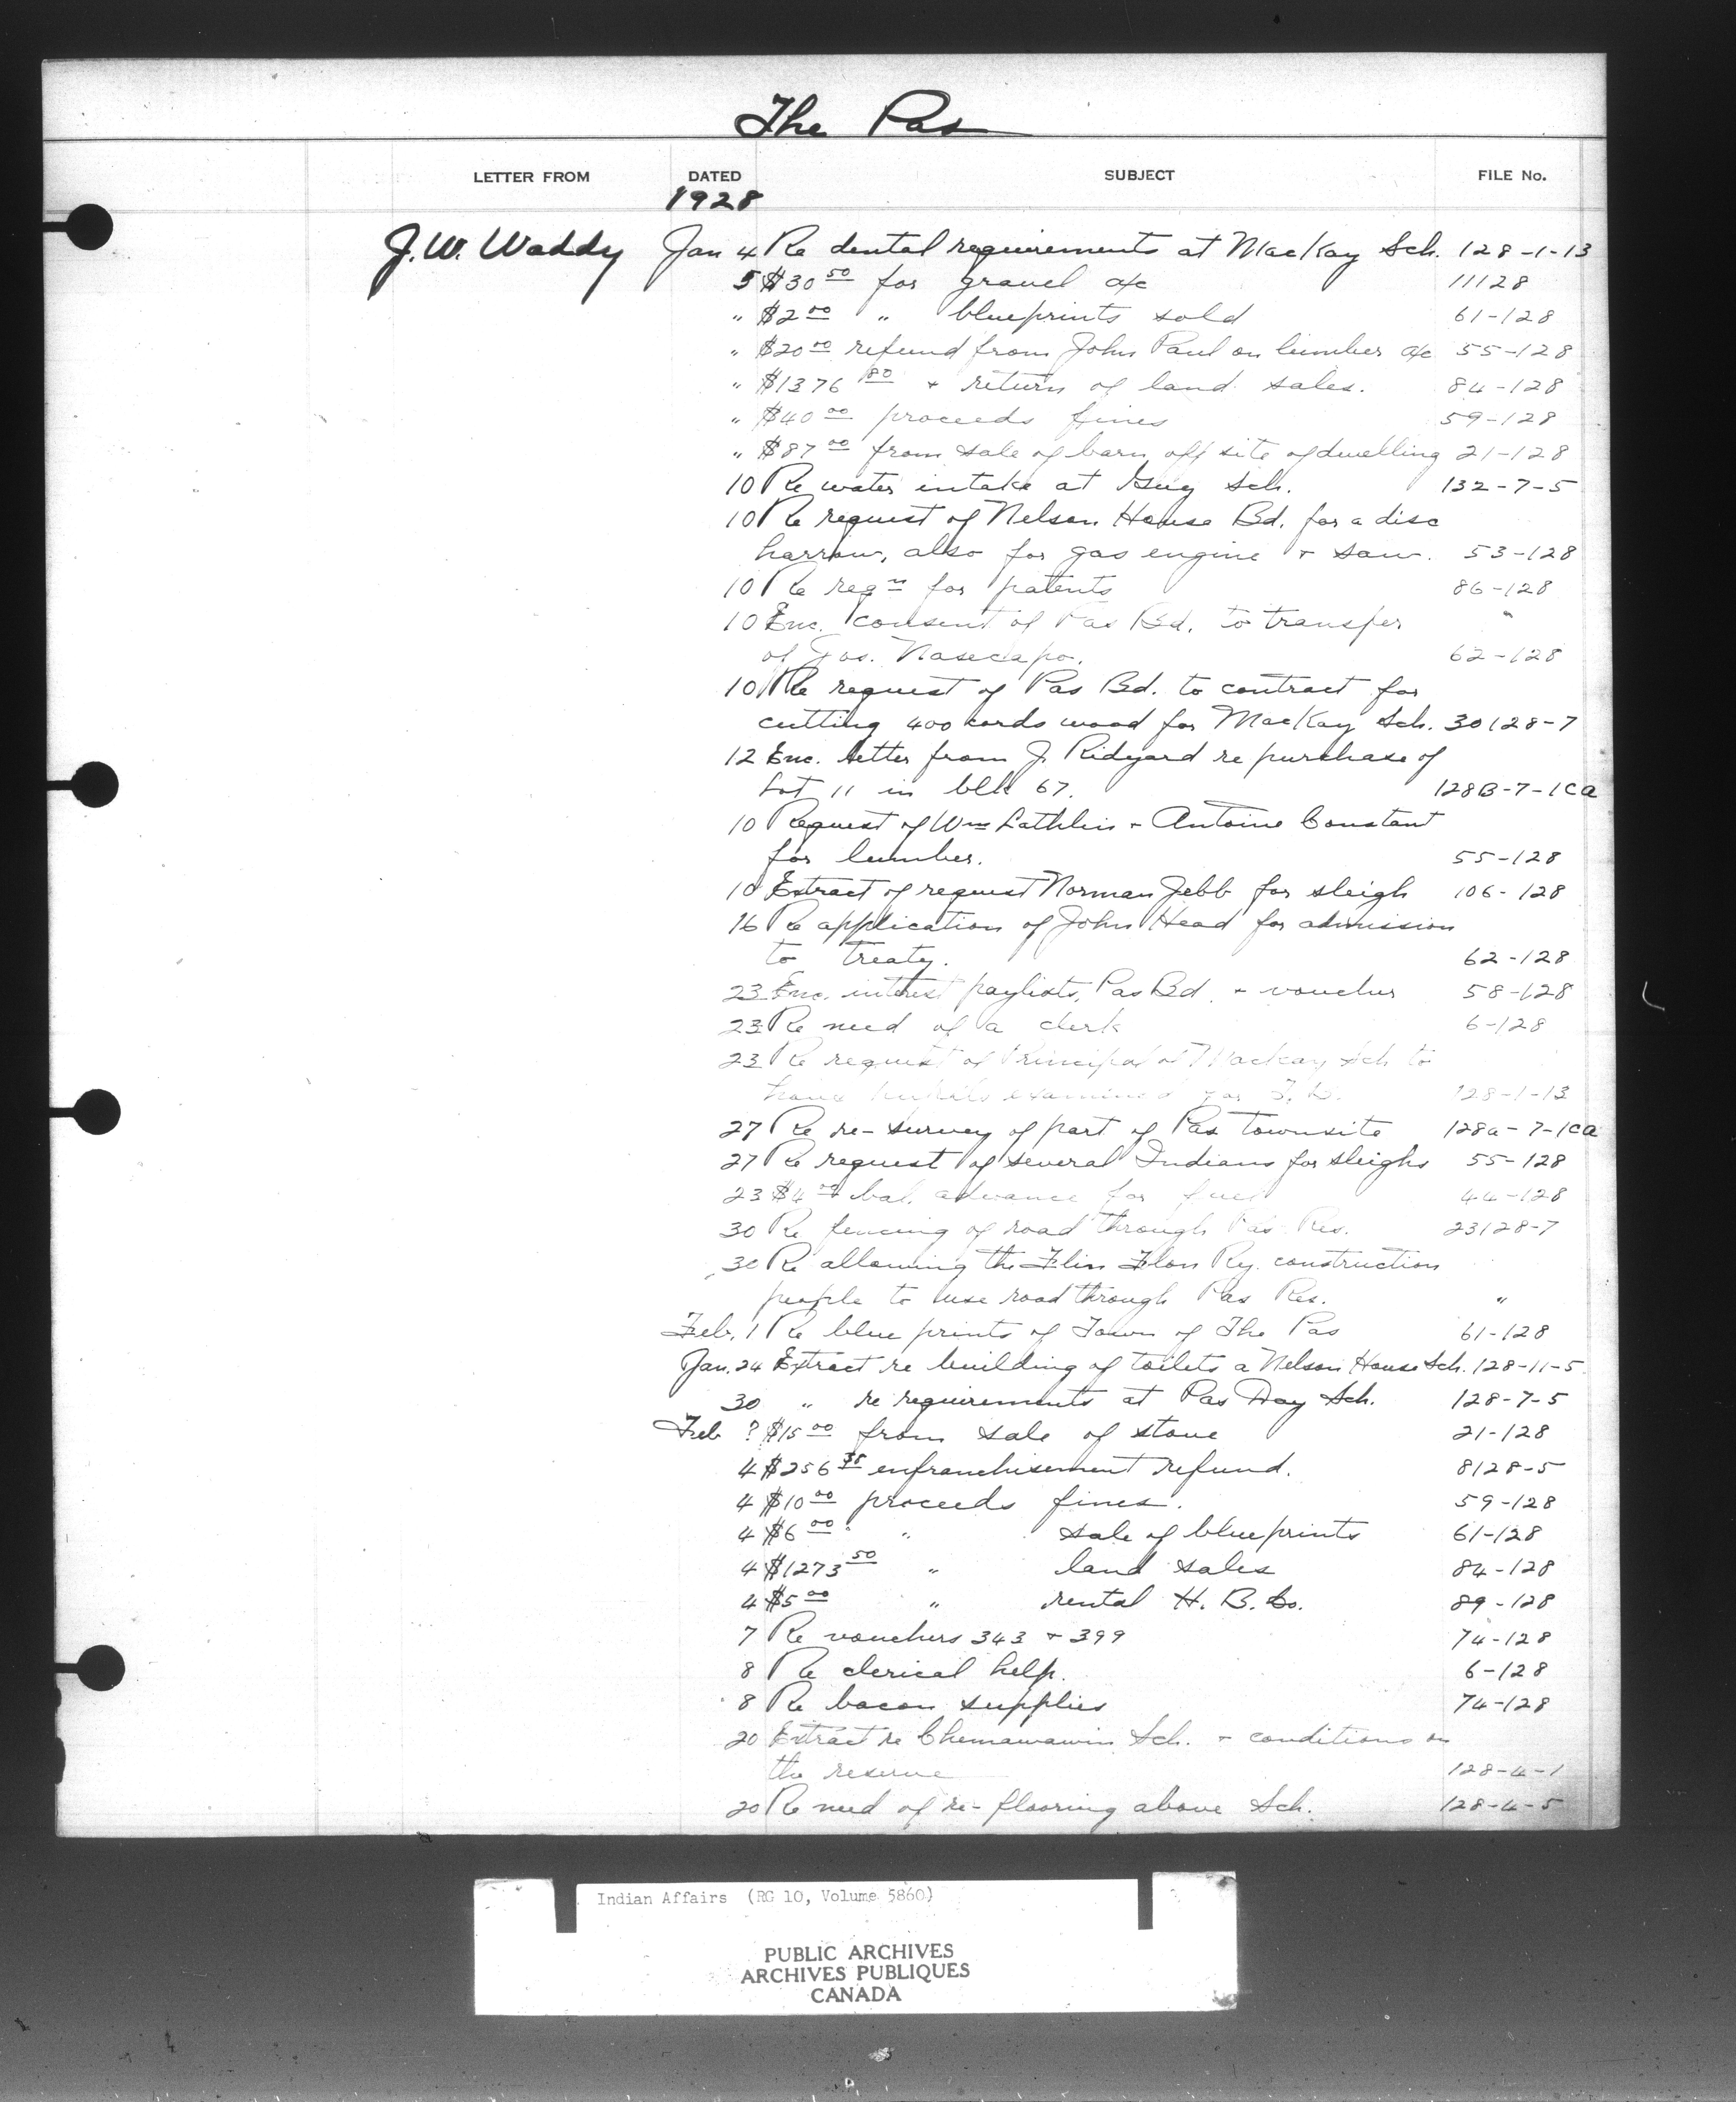 The Pas
LETTER FROM DATED SUBJECT FILE No.
1928
J. W. Waddy Jan 4 Re dental requirements at MacKay Sch. 128-1-13
5 $30 50 for gravel a/c 11128
" $2 00 " blueprints sold 61-128
" $20 00 refund from John Paul on lumber a/c 55-128
" $1376 80 + return of land sales. 84-128
" $40 00 proceeds fines 59-128
" $87 00 from sale of barn off site of dwelling 21-128
10 Re water intake at Guy Sch. 132-7-5
10 Re request of Nelson House Bd. for a disc
harrow, also for gas engine + saw. 53-128
10 Re reqn for patents 86-128
10 Enc. consent of Pas Bd. to transfer "
of Jos. Nasecapo. 62-128
10 Re request of Pas Bd. to contract for
cutting 400 cords wood for MacKay Sch. 30128-7
12 Enc. letter from J. Ridyard re purchase of
Lot 11 in blk 67. 128B-7-1CA
10 Request of Wm Lathlin + Antoine Constant
for lumber. 55-128
10 Extract of request Norman Jebb for sleigh 106-128
16 Re application of John Head for admission
to treaty. 62-128
23 Enc. interest paylists, Pas Bd. + voucher 58-128
23 Re need of a clerk 6-128
23 Re request of Principal of Mackay Sch to
have pupils examined for T.B. 128-1-13
27 Re re-survey of part of Pas townsite 128a-7-1CA
27 Re request of several Indians for sleighs 55-128
23 $4 00 bal. advance for fuel 44-128
30 Re fencing of road through Pas Res. 23128-7
30 Re allowing the Flin Flon Ry. construction
people to use road through Pas Res. "
Feb. 1 Re blue prints of Town of The Pas 61-128
Jan. 24 Extract re building of toilets a Nelson House Sch. 128-11-5
30 " re requirements at Pas Day Sch. 128-7-5
Feb ? $15 00 from sale of stove 21-128
4 $256 35 enfranchisement refund. 8128-5
4 $10 00 proceeds fines. 59-128
4 $6 00 " sale of blueprints 61-128
4 $1273 50 " land sales 84-128
4 $5 00 " rental H. B. Co. 89-128
7 Re vouchers 343 + 399 74-128
8 Re clerical help. 6-128
8 Re bacon supplies 74-128
20 Extract re Chemawawin Sch. + conditions on
the reserve 128-4-1
20 Re need of re-flooring above Sch. 128-4-5
Indian Affairs (RG 10, Volume 5860)
PUBLIC ARCHIVES
ARCHIVES PUBLIQUES
CANADA